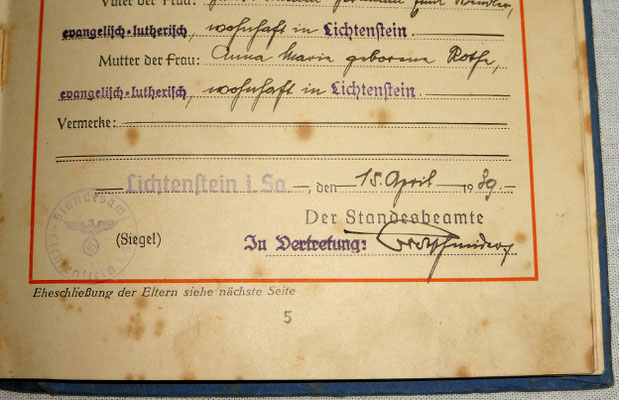 Vater der Frau:
evangelisch-lutherisch, wohnhaft in Lichtenstein.
Mutter der Frau: Anna Marie geborene Rothe,
evangelisch-lutherisch, wohnhaft in Lichtenstein.
Vermerke:
Lichtenstein i. Sa., den 15. April 1939.
Der Standesbeamte
(Siegel) In Vertretung:
Eheschließung der Eltern siehe nächste Seite
5